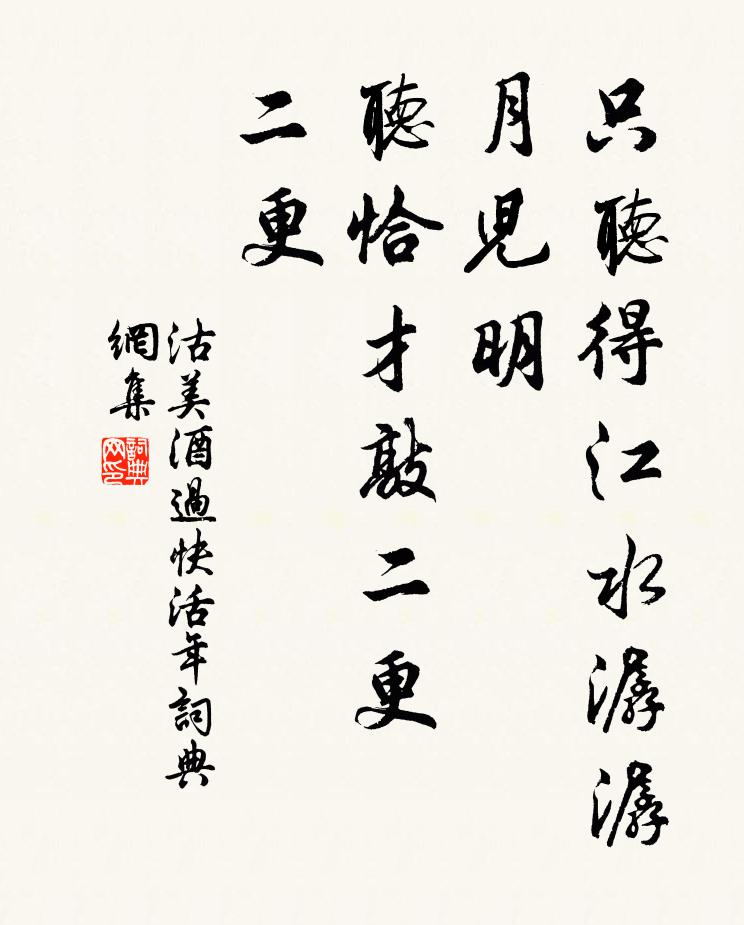 只聽得江水潺潺
月児明
聽恰才敲二更
二更
沽美酒過快活年詞典
網集
詞典網印